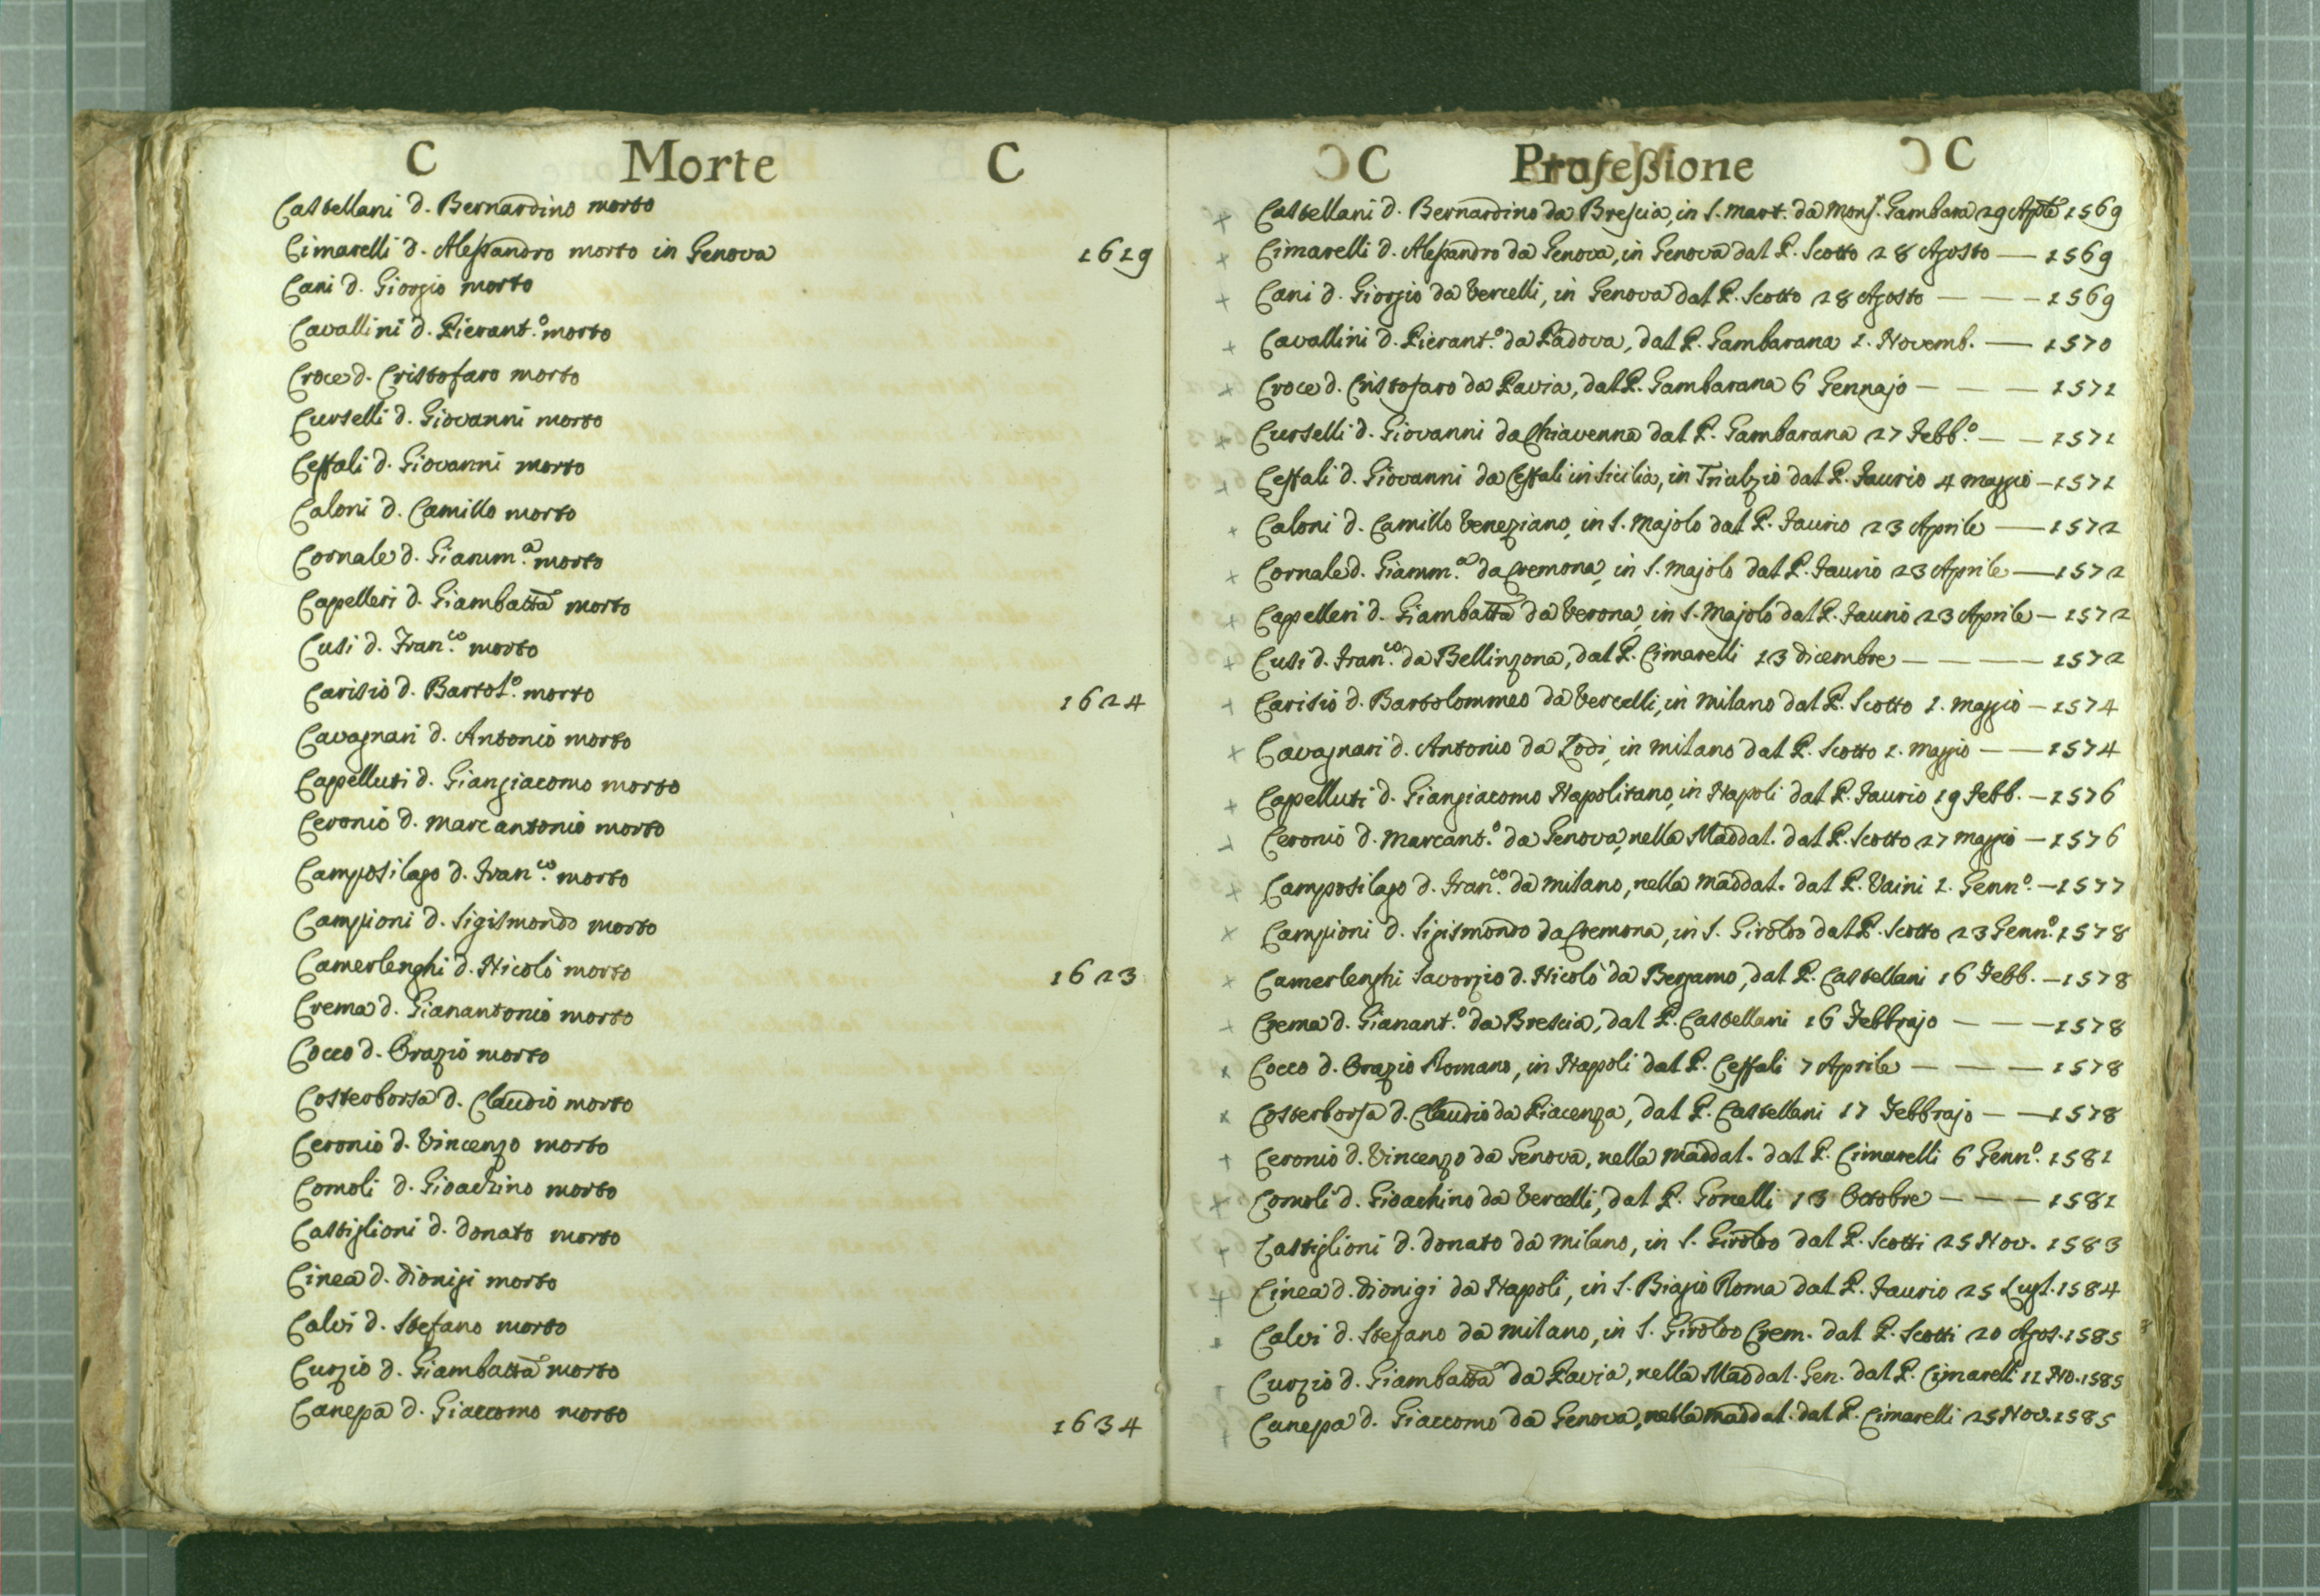 C Morte C
Castellani d. Bernardino morto
Cimarelli d. Alessandro morto in Genova 1619
Cani d. Giorgio morto
Cavallini d. Pierant.º morto
Croce d. Cristofaro morto
Curselli d. Giovanni morto
Ceffali d. Giovanni morto
Caloni d. Camillo morto
Cornale d. Gianm.ª morto
Capelleri d. Giambatta morto
Cusi d. Fran.co morto
Carisio d. Bartol.º morto 1624
Cavagnari d. Antonio morto
Capelluti d. Giangiacomo morto
Ceronio d. Marcantonio morto
Camposilago d. Fran.co morto
Campioni d. Sigismondo morto
Camerlenghi d. Nicolò morto 1623
Crema d. Gianantonio morto
Cocco d. Orazio morto
Costerborsa d. Claudio morto
Ceronio d. Vincenzo morto
Comoli d. Gioachino morto
Castiglioni d. Donato morto
Cinea d. Dionigi morto
Calvi d. Stefano morto
Curzio d. Giambatta morto
Canepa d. Giaccomo morto 1634
C Professione C
+ Castellani d. Bernardino da Brescia, in S. Mart. da Mons.r Gambara 29 Aple 1569
+ Cimarelli d. Alessandro da Genova, in Genova dal P. Scotto 28 Agosto — 1569
+ Cani d. Giorgio da Vercelli, in Genova dal P. Scotto 28 Agosto — — — 1569
+ Cavallini d. Pierant.º da Padova, dal P. Gambarana 1. Novemb. — 1570
+ Croce d. Cristofaro da Pavia, dal P. Gambarana 6 Gennajo — — — 1571
+ Curselli d. Giovanni da Chiavenna dal P. Gambarana 27 Febb.º — — 1571
+ Ceffali d. Giovanni da Ceffali in Sicilia, in Triulzio dal P. Faurio 4 Maggio — 1571
+ Caloni d. Camillo Veneziano, in S. Majolo dal P. Faurio 23 Aprile — 1572
+ Cornale d. Giamm.ª da Cremona, in S. Majolo dal P. Faurio 23 Aprile — 1572
+ Capelleri d. Giambatta da Verona, in S. Majolo dal P. Faurio 23 Aprile — 1572
+ Cusi d. Fran.co da Bellinzona, dal P. Cimarelli 13 Dicembre — — — 1572
+ Carisio d. Bartolommeo da Vercelli, in Milano dal P. Scotto 1. Maggio — 1574
+ Cavagnari d. Antonio da Lodi, in Milano dal P. Scotto 1. Maggio — — 1574
+ Capelluti d. Giangiacomo Napolitano, in Napoli dal P. Faurio 19 Febb. — 1576
+ Ceronio d. Marcant.º da Genova, nella Maddal. dal P. Scotto 27 Maggio — 1576
+ Camposilago d. Fran.co da Milano, nella Maddal. dal P. Vaini 1. Genn.º — 1577
+ Campioni d. Sigismondo da Cremona, in S. Girolmo dal P. Scotto 23 Genn.º 1578
+ Camerlenghi Savorgio d. Nicolò da Bergamo, dal P. Castellani 16 Febb. — 1578
+ Crema d. Gianant.º da Brescia, dal P. Castellani 16 Febbrajo — — — 1578
x Cocco d. Orazio Romano, in Napoli dal P. Ceffali 7 Aprile — — — 1578
x Costerborsa d. Claudio da Piacenza, dal P. Castellani 17 Febbrajo — — 1578
+ Ceronio d. Vincenzo da Genova, nella Maddal. dal P. Cimarelli 6 Genn.º 1581
+ Comoli d. Gioachino da Vercelli, dal P. Gonelli 13 Octobre — — — 1581
+ Castiglioni d. Donato da Milano, in S. Girolmo dal P. Scotti 25 Nov. 1583
+ Cinea d. Dionigi da Napoli, in S. Biagio Roma dal P. Faurio 25 Lugl. 1584
Calvi d. Stefano da Milano, in S. Girolmo Crem. dal P. Scotti 20 Agos. 1585
Curzio d. Giambatta da Pavia, nella Maddal. Gen. dal P. Cimarelli 11 No. 1585
+ Canepa d. Giaccomo da Genova, nella Maddal. dal P. Cimarelli 25 Nov. 1585